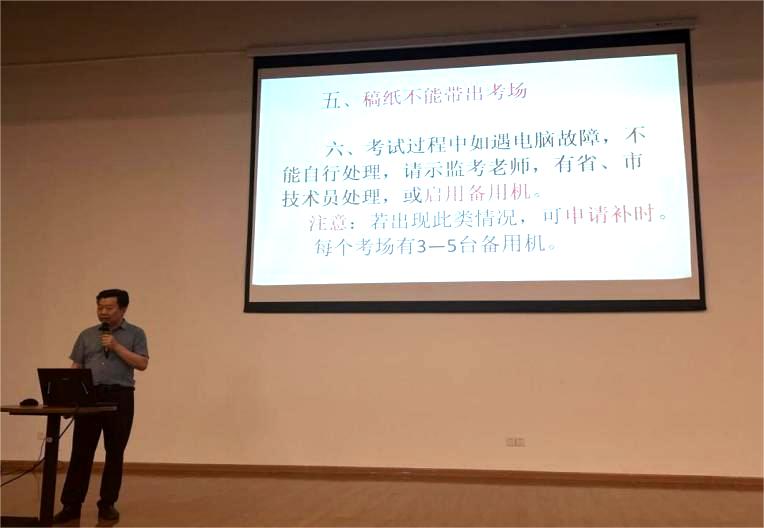 五、稿纸不能带出考场
六、考试过程中如遇电脑故障，不
能自行处理，请示监考老师，有省、市
技术员处理，或启用备用机。
注意：若出现此类情况，可申请补时。
每个考场有3—5台备用机。